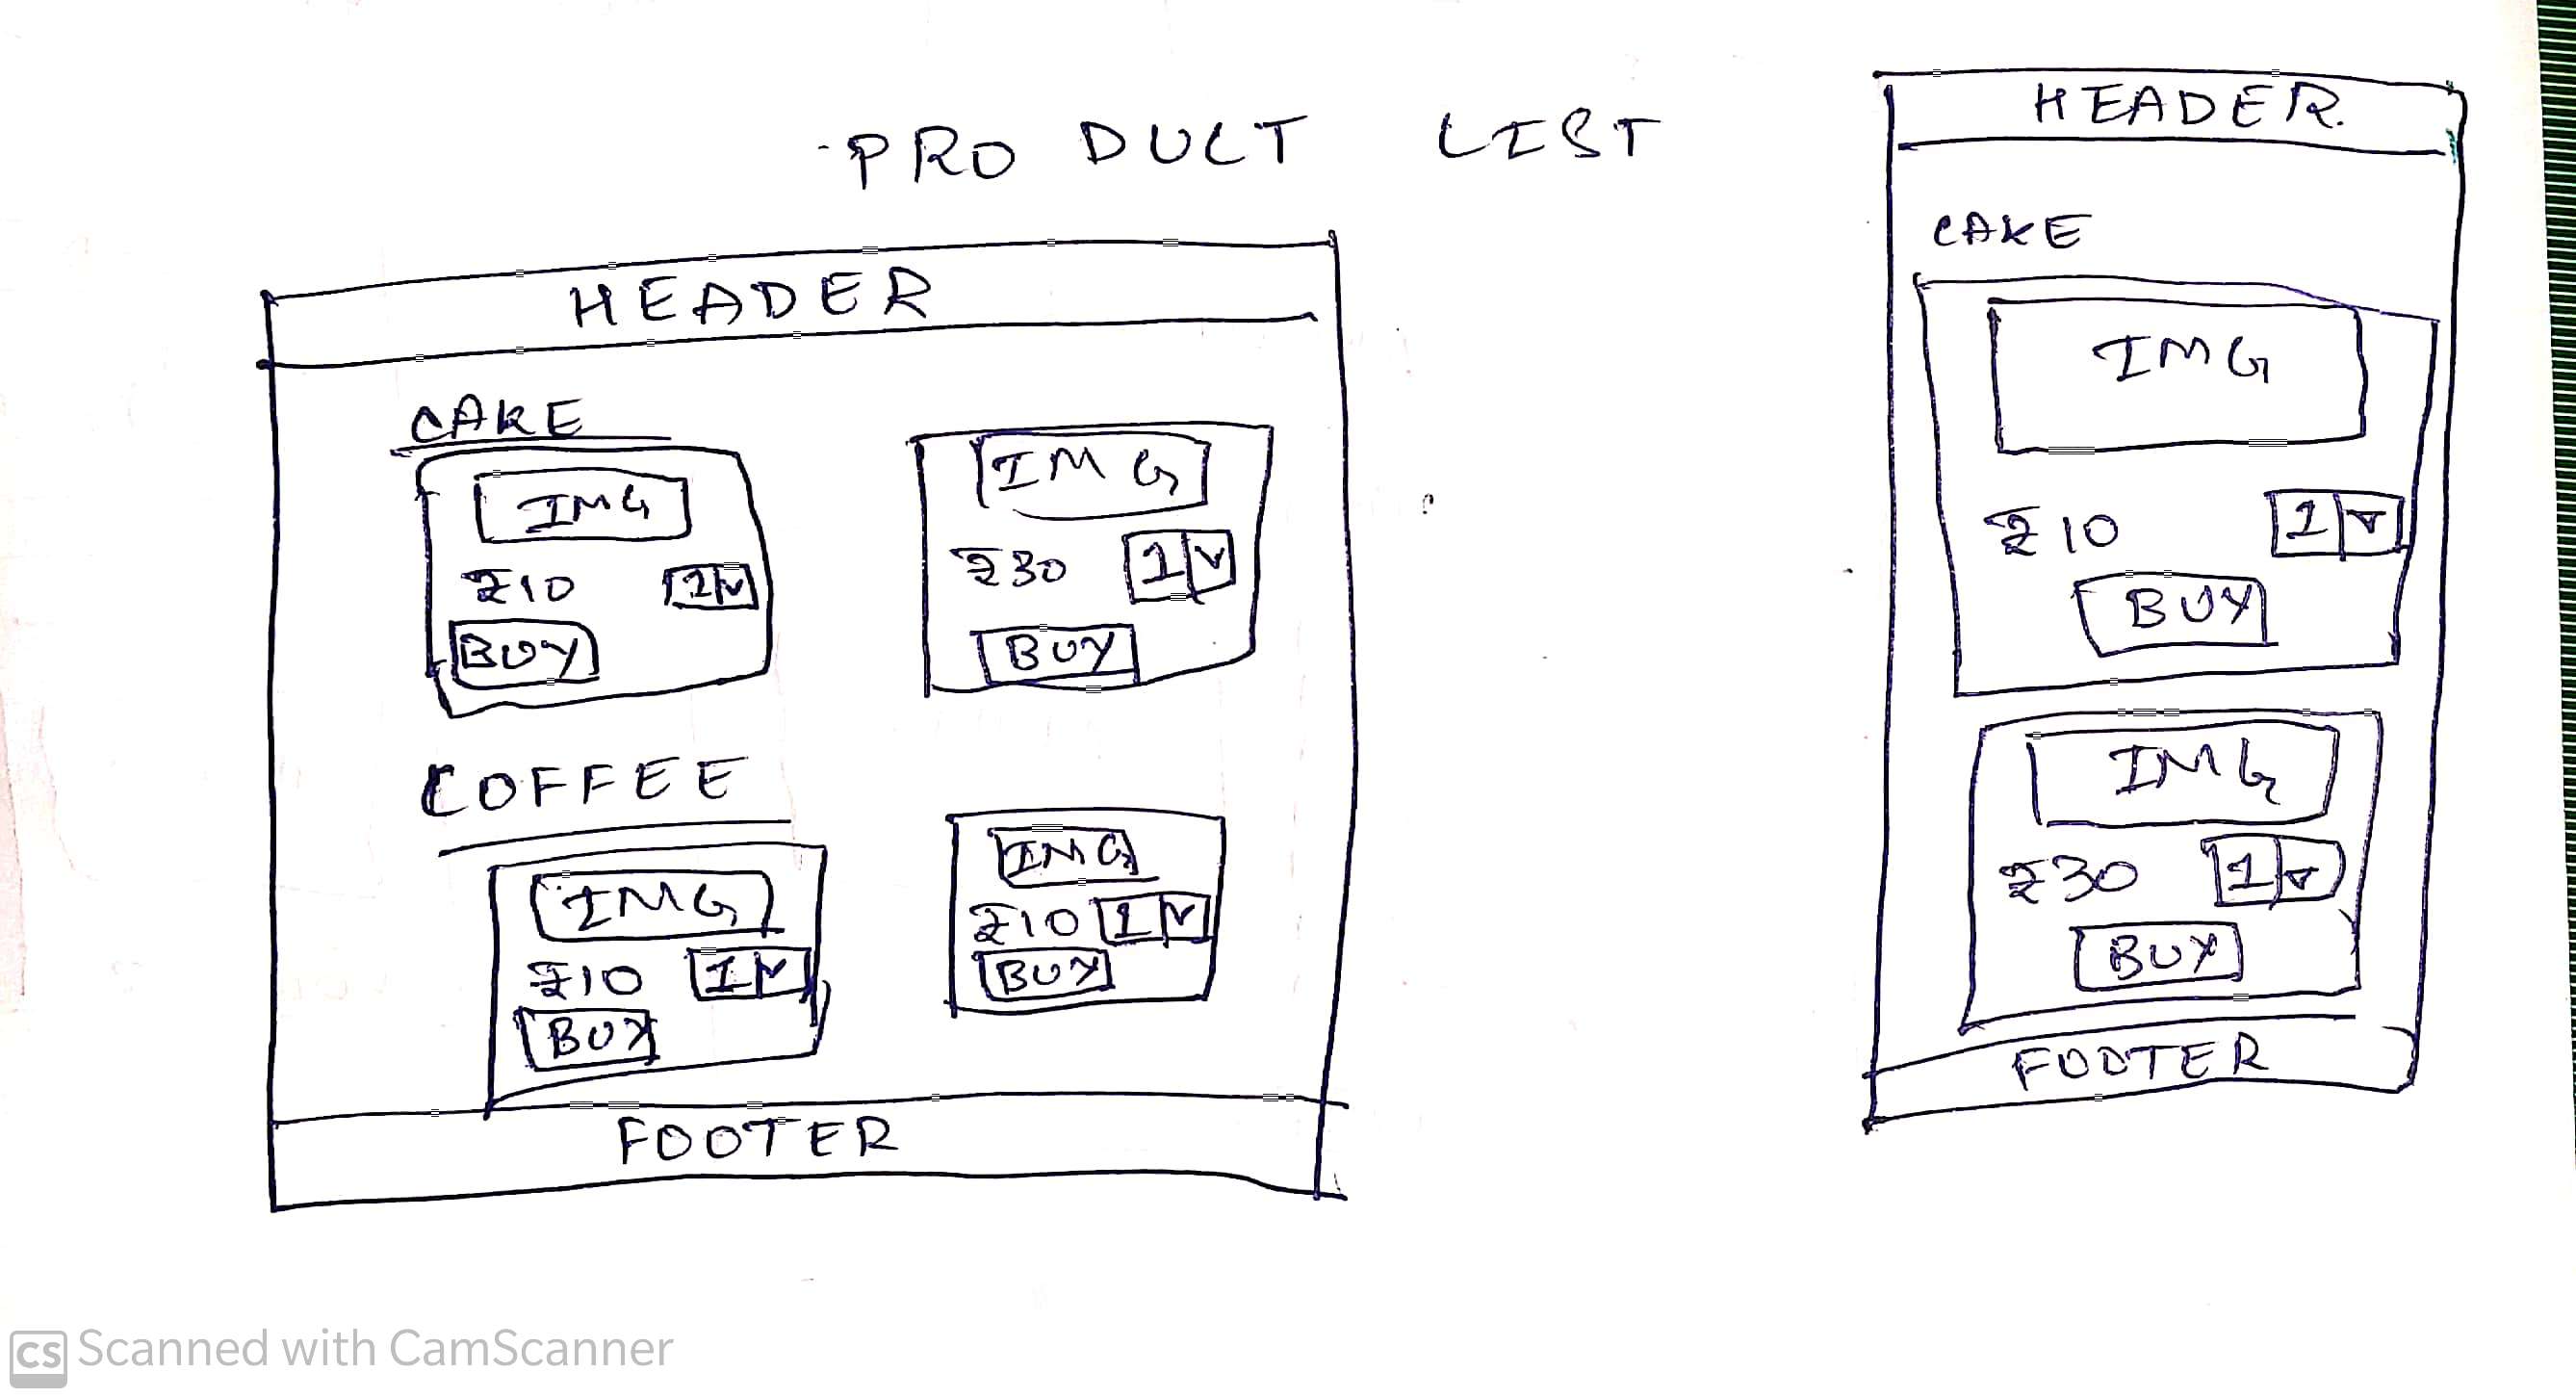 PRODUCT LIST
HEADER
CAKE
IMG
IMG
₹10 1
₹30 1
BUY
BUY
COFFEE
IMG
IMG
₹10 1
₹10 1
BUY
BUY
FOOTER
HEADER.
CAKE
IMG
₹10 1
BUY
IMG
₹30 1
BUY
FOOTER
CS Scanned with CamScanner